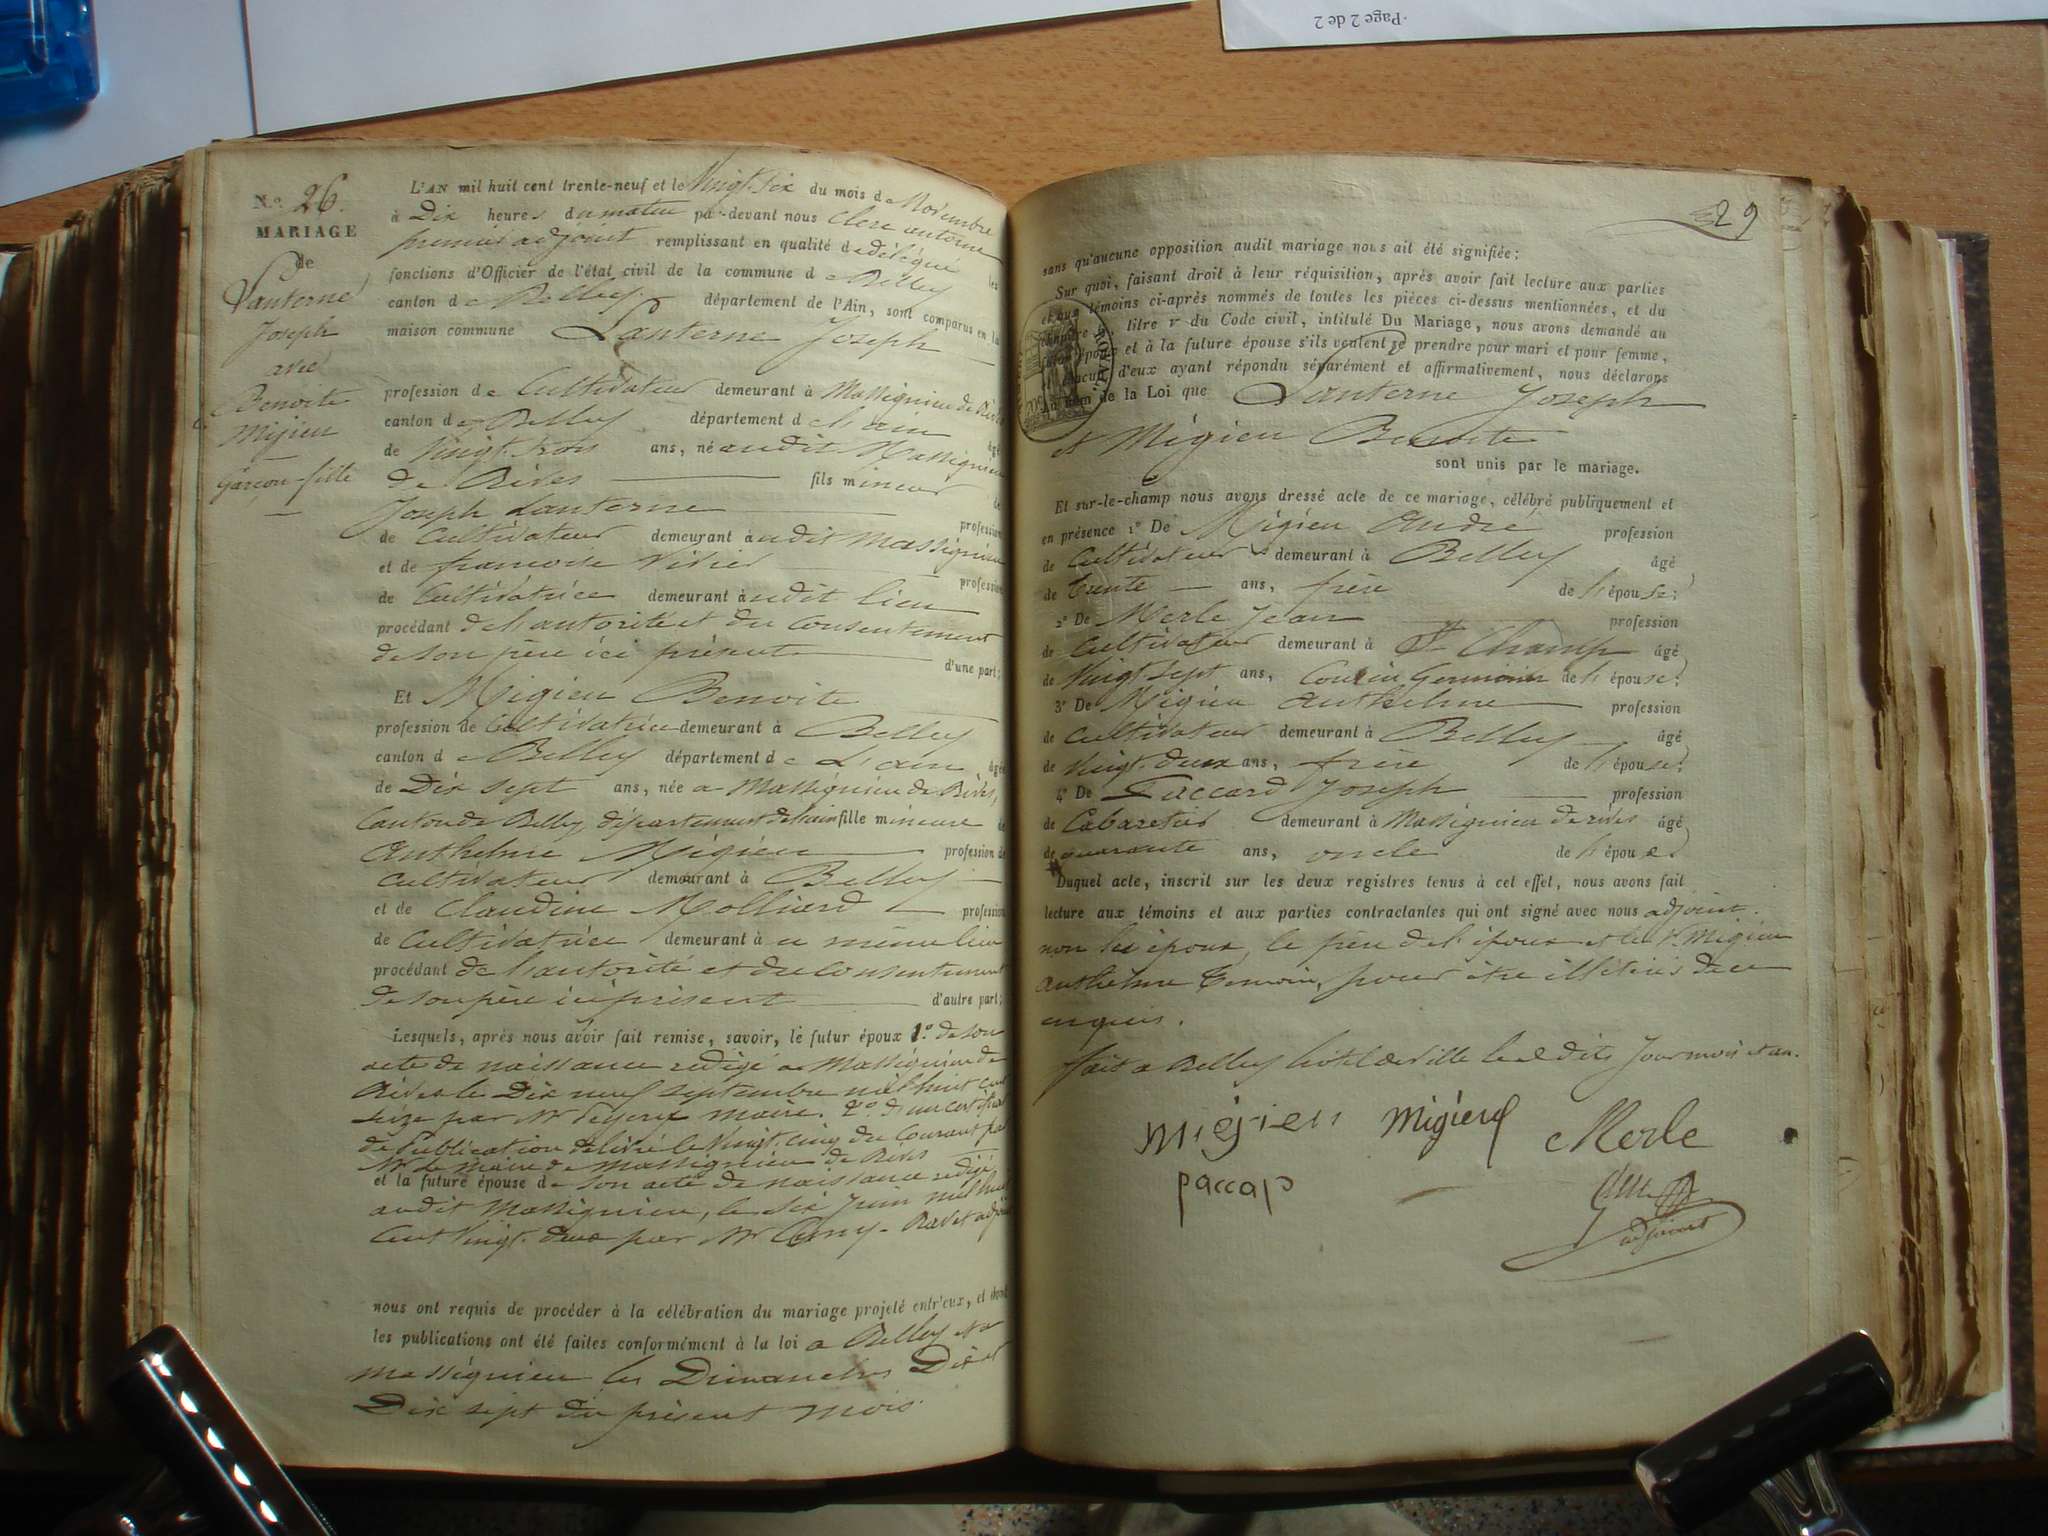 Page 2 de 2
N.o 26.
MARIAGE
de
Lanterne
Joseph
avec
Benoite
Migieu
Garçon-fille
L'AN mil huit cent trente-neuf et le Vingt-six du mois de Novembre
à Dix heures du matin par-devant nous Clerc antoine
premier adjoint remplissant en qualité de délégué les
fonctions d'Officier de l'état civil de la commune de Belley
canton de Belley département de l'Ain, sont comparus en la
maison commune Lanterne Joseph
profession de Cultivateur demeurant à Massignieu de Rives
canton de Belley département de l'ain âgé
de Vingt-trois ans, né audit Massignieu
de Rives fils mineur de
Joseph Lanterne profession
de Cultivateur demeurant audit Massignieu
et de francoise profession
de Cultivatrice demeurant audit lieu
procédant de l'autorité et du consentement
de son père ici présent d'une part;
Et Migieu Benoite
profession de Cultivatrice demeurant à Belley
canton de Belley département de L'ain âgée
de Dix sept ans, née a Massignieu de Rives,
Canton de Belley, département de l'ain fille mineure de
Anthelme Migieu profession de
Cultivateur demeurant à Belley
et de Claudine Molliard profession
de Cultivatrice demeurant à ce même lieu
procédant de l'autorité et du consentement
de son père ici présent d'autre part;
Lesquels, après nous avoir fait remise, savoir, le futur époux 1.o de son
acte de naissance redigé a Massignieu de
Rives le Dix neuf septembre mil huit cent
seize par Mr maire. 2.o d'un certificat
de Publication délivré le Vingt-cinq du Courant par
Mr Le maire de Massignieu de Rives
et la future épouse de son acte de naissance redigé
audit Massignieu, le six Juin mil huit
Cent Vingt-deux par Mr adjoint
nous ont requis de procéder à la célébration du mariage projeté entr'eux, et dont
les publications ont été faites conformément à la loi a Belley et a
massignieu les Dimanches Dix et
Dix sept du présent mois.
29
sans qu'aucune opposition audit mariage nous ait été signifiée;
Sur quoi, faisant droit à leur réquisition, après avoir fait lecture aux parties
et aux témoins ci-après nommés de toutes les pièces ci-dessus mentionnées, et du
chapitre 6, titre V du Code civil, intitulé Du Mariage, nous avons demandé au
futur époux et à la future épouse s'ils veulent se prendre pour mari et pour femme,
et chacun d'eux ayant répondu séparément et affirmativement, nous déclarons
au nom de la Loi que Lanterne Joseph
et Migieu Benoite
sont unis par le mariage.
Et sur-le-champ nous avons dressé acte de ce mariage, célébré publiquement et
en présence 1o De Migieu André profession
de Cultivateur demeurant à Belley âgé
de trente ans, frère de l'épouse;
2o De Merle Jean profession
de Cultivateur demeurant à St Champ âgé
de Vingt sept ans, Cousin Germain de l'épouse;
3o De Migieu anthelme profession
de Cultivateur demeurant à Belley âgé
de Vingt-deux ans, frère de l'épouse;
4o De Paccard Joseph profession
de Cabaretier demeurant à Massignieu de rives âgé
de quarante ans, oncle de l'épouse
Duquel acte, inscrit sur les deux registres tenus à cet effet, nous avons fait
lecture aux témoins et aux parties contractantes qui ont signé avec nous adjoint.
non les époux, le père de l'époux et le Sr Migieu
anthelme témoin, pour être illétirés de ce
enquis.
fait a Belley hotel de Ville les dits Jour mois et an.
Migieu Migieu Merle
paccap
adjoint